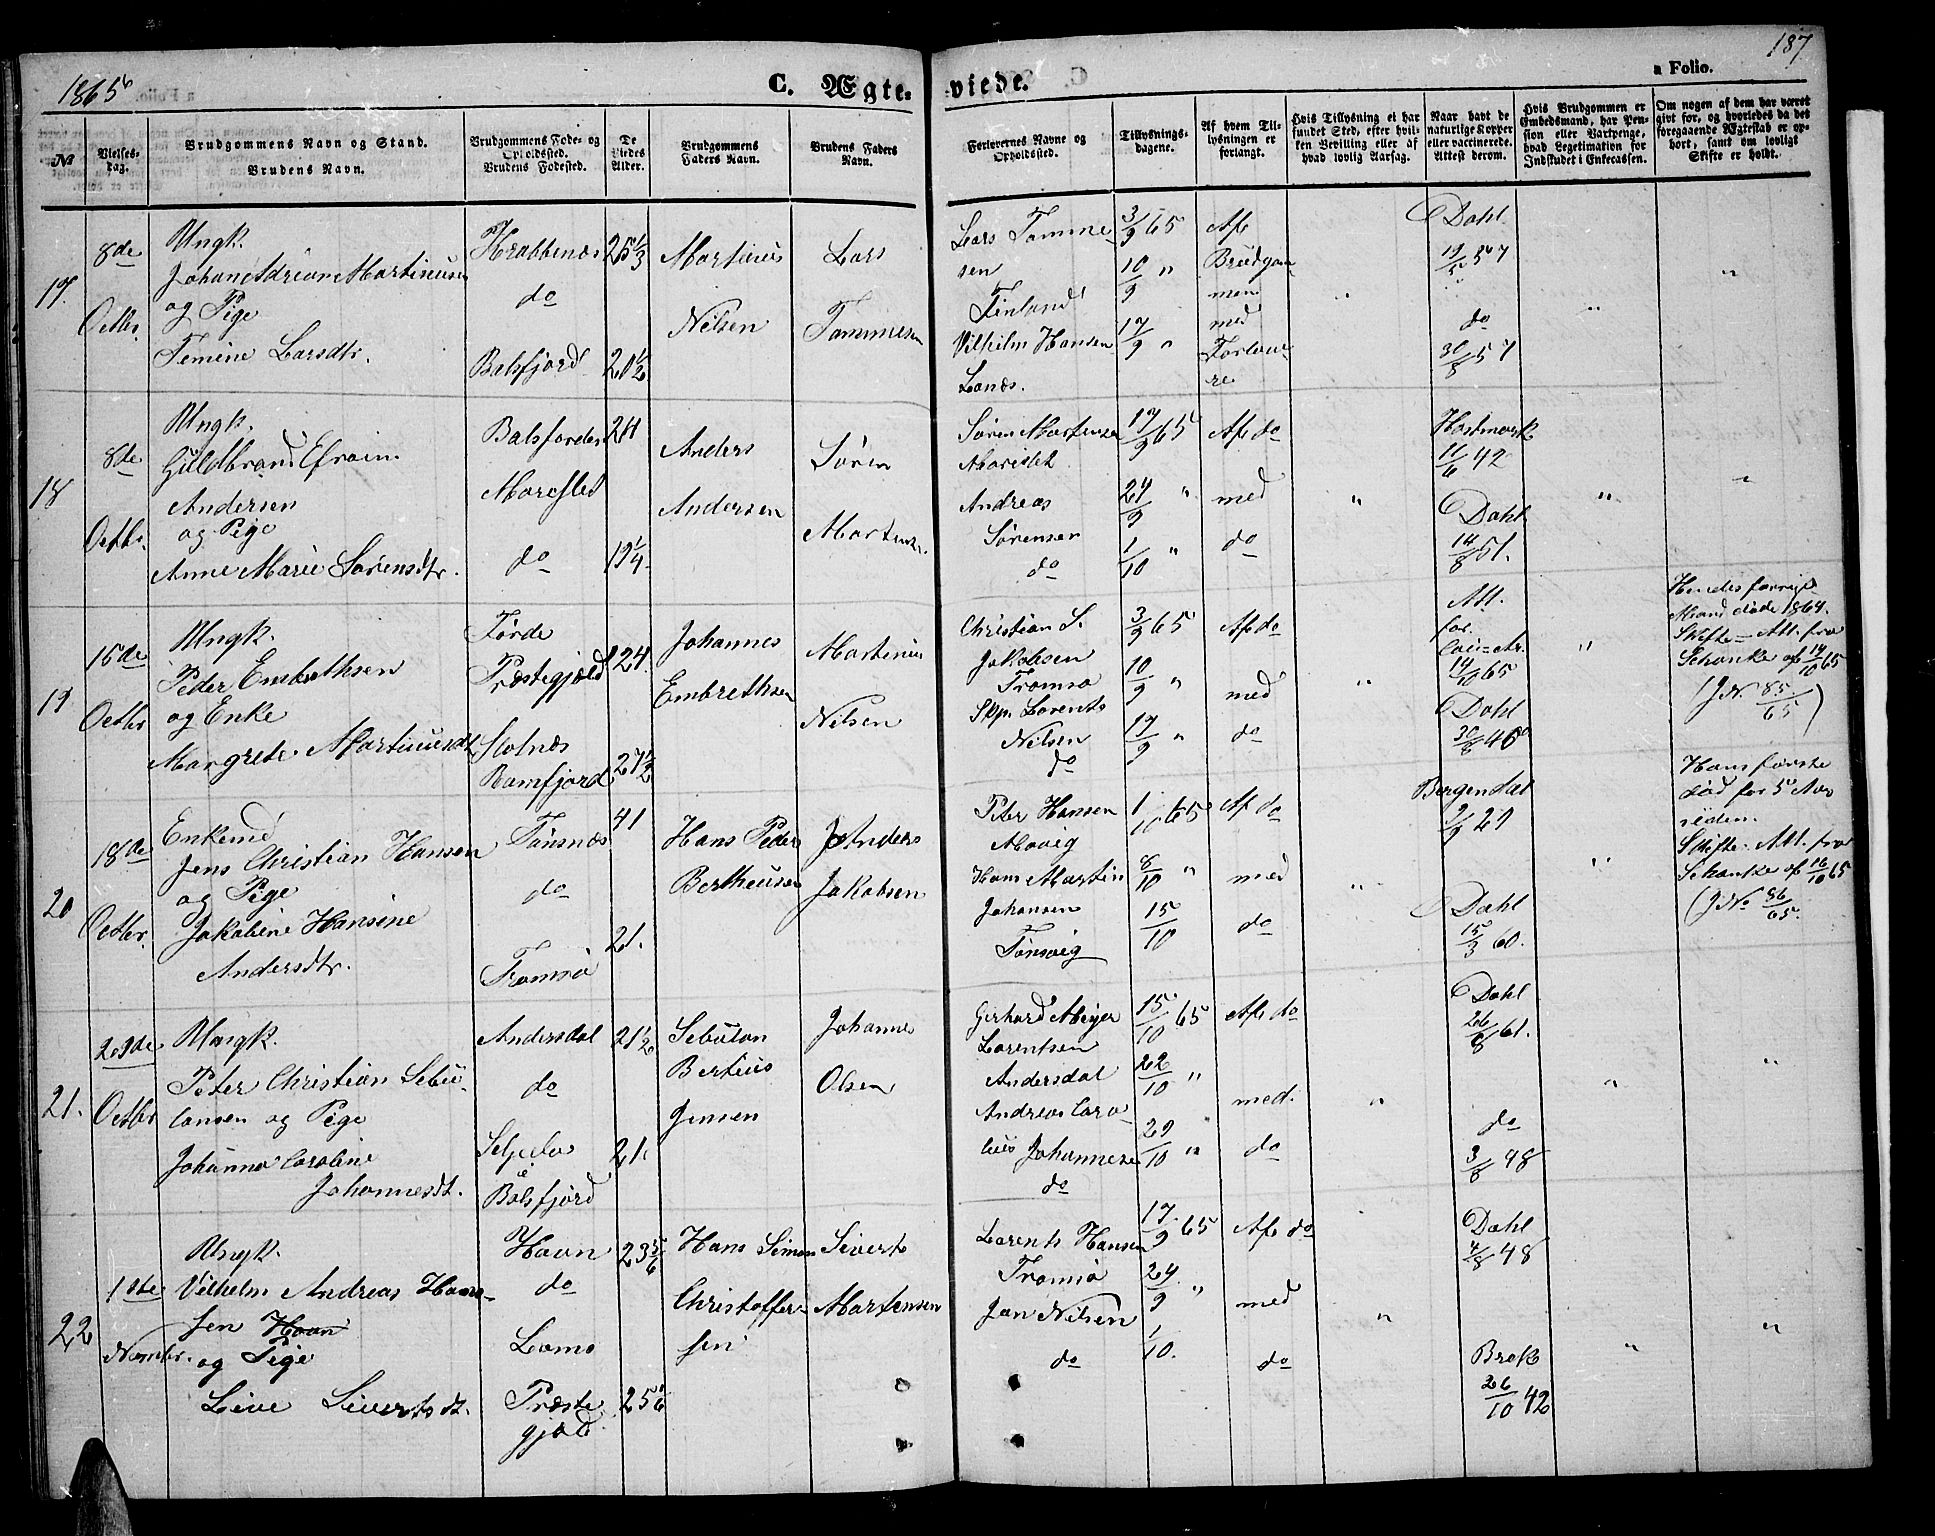 1865
C. Ægte-
viede.
a Folio.
187
No
Vielses-
dag.
Brudgommens Navn og Stand.
Brudens Navn.
Brudgommens Føde- og
Opholdssted.
Brudens Fødested.
De
Viedes
Alder.
Brudgommens
Faders Navn.
Brudens Faders
Navn.
Forlovernes Navne og
Opholdssted.
Tillysnings-
dagene.
Af hvem Til-
lysningen er
forlangt.
Hvis Tillysning ei har
fundet Sted, efter hvil-
ken Bevilling eller af
hvad lovlig Aarsag.
Naar havt de
naturlige Kopper
eller vaccinerede.
Attest derom.
Hvis Brudgommen er
Embedsmand, har Pen-
sion eller Vartpenge,
hvad Legitimation for
Indskudet i Enkecassen.
Om nogen af dem har været
givt før, og hvorledes da det
foregaaende Ægteskab er op-
hørt, samt om lovligt
Skifte er holdt.
17.
8de
Octbr.
Ungk.
Johan Adrian Martinusen
og Pige
Temine Larsdtr.
Krabbenæs
do
Balsfjord
25 1/3
20 1/2
Martinus
Nilsen
Lars
Tommesen
Lars Tomme
sen
Finland
Vilhelm Hansen
Lanæs.
3/9 65
10/9 "
17/9 "
Af
Brudgom
men
med
Forlove
re
"
Dahl
19/5 57
do
30/8 57
"
"
18
8de
Octbr.
Ungk.
Guldbrand Efraim
Andersen
og Pige
Anne Marie Sørensdtr.
Balsfjorden
Moreslet
do
24
19 1/4.
Anders
Andersen
Søren
Martensen
Søren Martensen
Moreslet
Andreas
Sørensen
do
17/9 65
24/9 "
1/10 "
Af do
med
do
"
Hostmark
11/6 42
Dahl
14/8 51.
"
"
19
15de
Octbr
Ungk.
Peder Embrethsen
og Enke
Margrete Martinusdt.
Førde
Præstegjæld
Stolnæs
Ramfjord
24.
27 1/2
Johannes
Embrethsen
Martinus
Nilsen
Christian S.
Jakobsen
Tromsø
Skpr. Lorents
Nilsen
do
3/9 65
10/9 "
17/9 "
Af do
med
do
"
Att.
for
14/10 65
Dahl
30/8 40
"
Hendes forrige
Mand døde 1864.
Skifte-Att. fra
Schanke af 14/10 65
(J No 85/65)
20
18de
Octbr.
Enkemd
Jens Christian Hansen
og Pige
Jakobine Hansine
Andersdtr.
Tønsnæs
do
Tromsø
41
21.
Hans Peder
Bertheusen
Anders
Jakobsen
Peter Hansen
Movig
Hans Martin
Johansen
Tønsvig
1/10 65
8/10 "
15/10
Af do
med
do
"
Bergendal
2/9 29
Dahl
15/3 60.
"
Hans første
død for 5 Aar
siden.
Skifte-Att. fra
Schanke af 16/10 65
(J No 86/65.
21.
29de
Octbr
Ungk.
Peter Christian Sebu-
lonsen og Pige
Johanna Caroline
Johannesdt.
Andersdal
do
Seljelo
i
Balsfjord
21 1/2
21.
Sebulon
Bertius
Jensen
Johannes
Olsen
Gerhard Meyer
Lorentsen
Andersdal
Andreas Caro
lius Johannesen
do
15/10 65
22/10 "
29/10 "
Af do
med.
do
"
Dahl
26/8 61.
do
3/8 48
"
"
22
1ste
Novmbr.
Ungk.
Vilhelm Andreas Han-
sen Havn
og Pige
Live Sivertsdt.
Havn
do
Loms
Præste
gjæld
23 5/6
25 1/6
Hans Simon
Christoffer-
sen
Siverts
Martensen
Lorents Hansen
Tromsø
Jan Nilsen
do
17/9 65
24/9 "
1/10.
Af do
med
do
"
Dahl
4/8 48
Brok
26/10 42
"
"